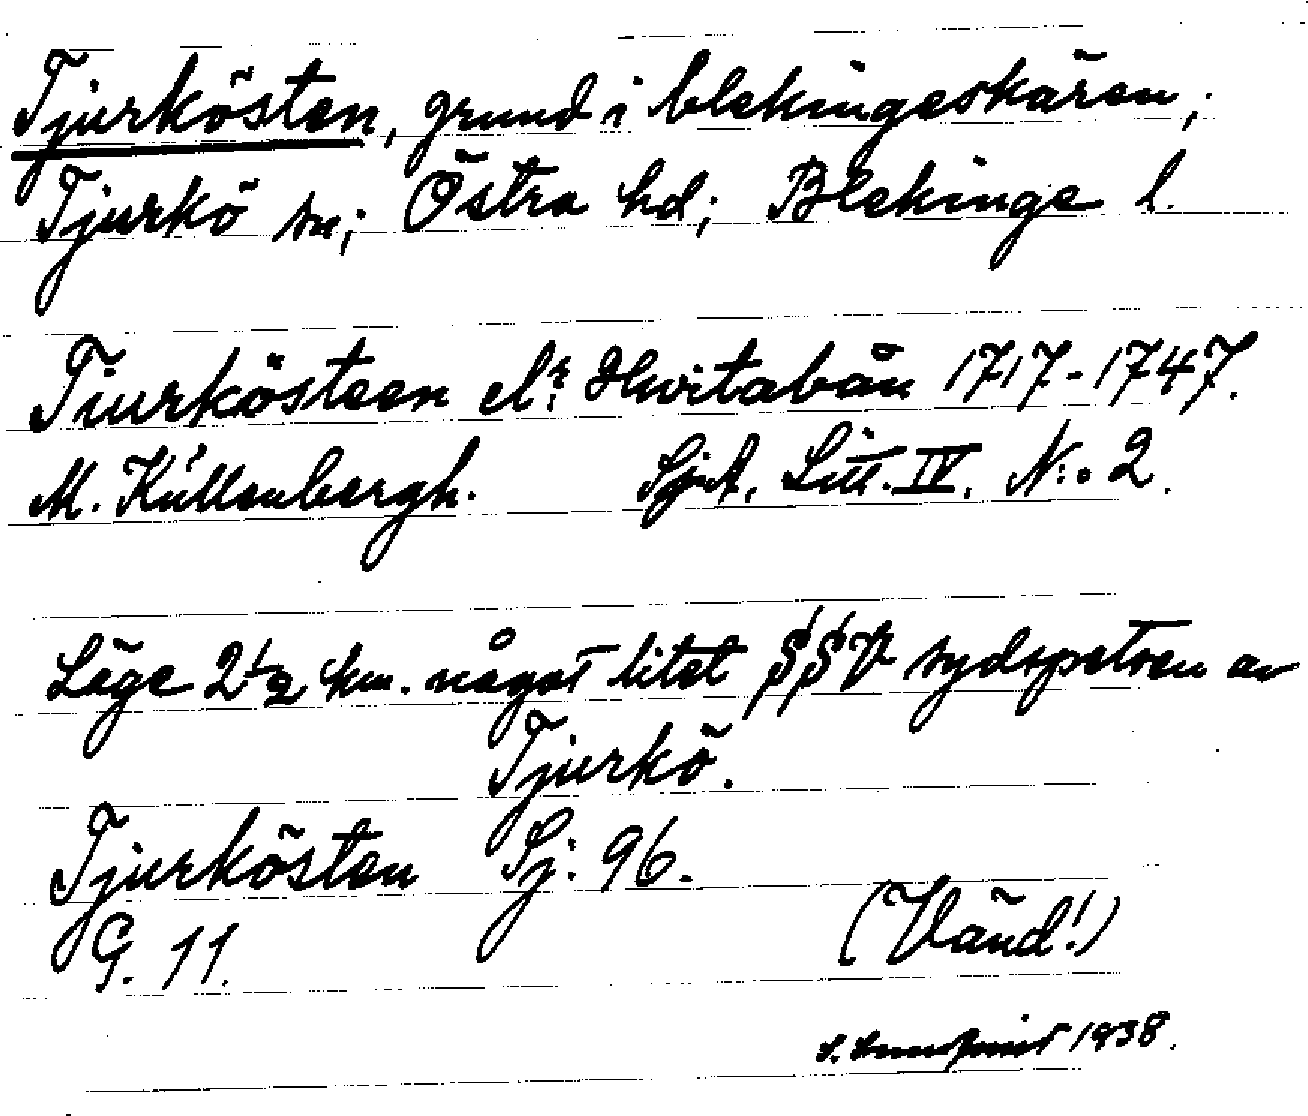 Tjurkösten, grund i blekingeskären;
Tjurkö sn; Östra hd; Blekinge l.
Tiurkösteen elr Hwitabån 1717-1747.
M. Küllenbergh. SjA, Litt. IV, N:o 2.
Läge 2 1/2 km. något litet SSV sydspetsen av
Tjurkö.
Tjurkösten Sj: 96.
G. 11. (Vänd!)
S. 1938.